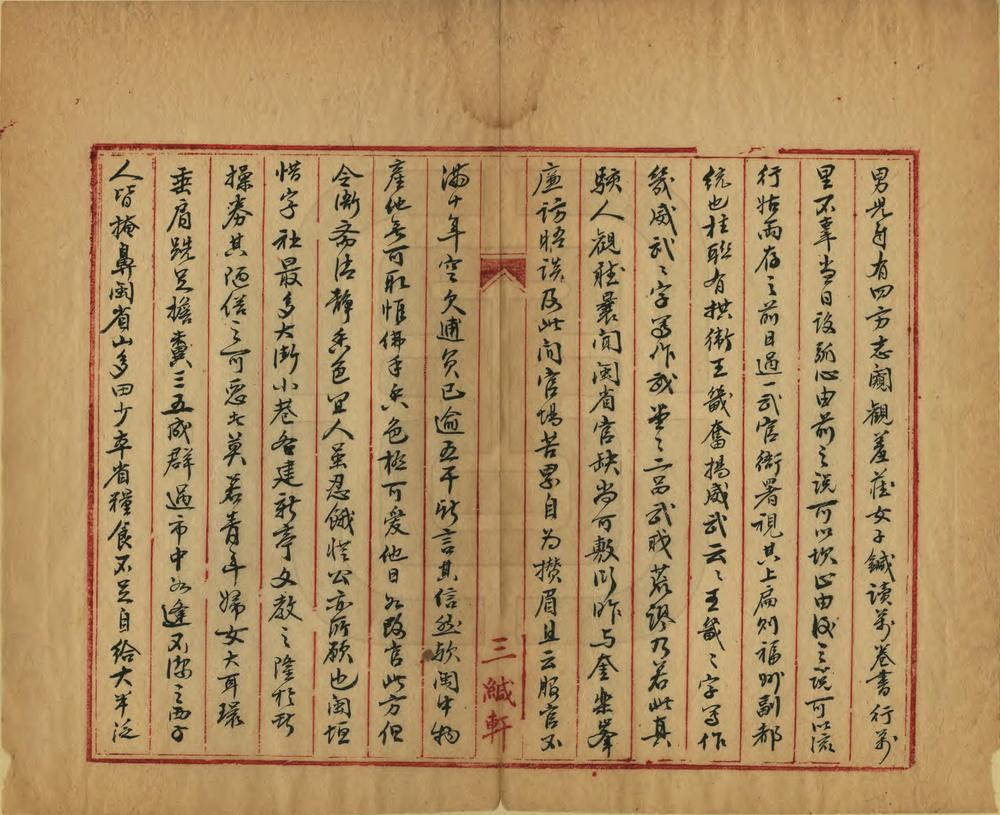 男兒身有四方志窺觀羞在女子鍼讀萬卷書行萬
里不辜當日設弧心由前之說可以坎止由後之說可以流
行姑兩存之前日過一武官衙署視其上扁則福州副都
統也柱聯有拱衛王畿奮揚威武云〻王畿〻字寫作
幾威武〻字寫作武堂〻二品武職荒謬乃若此真
駭人觀聽曩聞閩省官缺尚可敷衍昨與金樂峯
廉訪晤談及此間官場苦累自為攢眉且云服官不
滿十年空欠逋負已逾五千所言其信然歟閩中物
產他無可取惟佛手香色極可愛他日如改官此方但
令衙齋清靜香色宜人虽忍餓從公亦所願也閩垣
惜字社最多大街小巷各建新亭文教之隆於斯
操券其陋俗之可惡者莫若青年婦女大耳環
垂肩跣足擔糞三五成群過市中如逢不潔之西子
人皆掩鼻閩省山多田少本省糧食不足自給大半泛
三緘軒